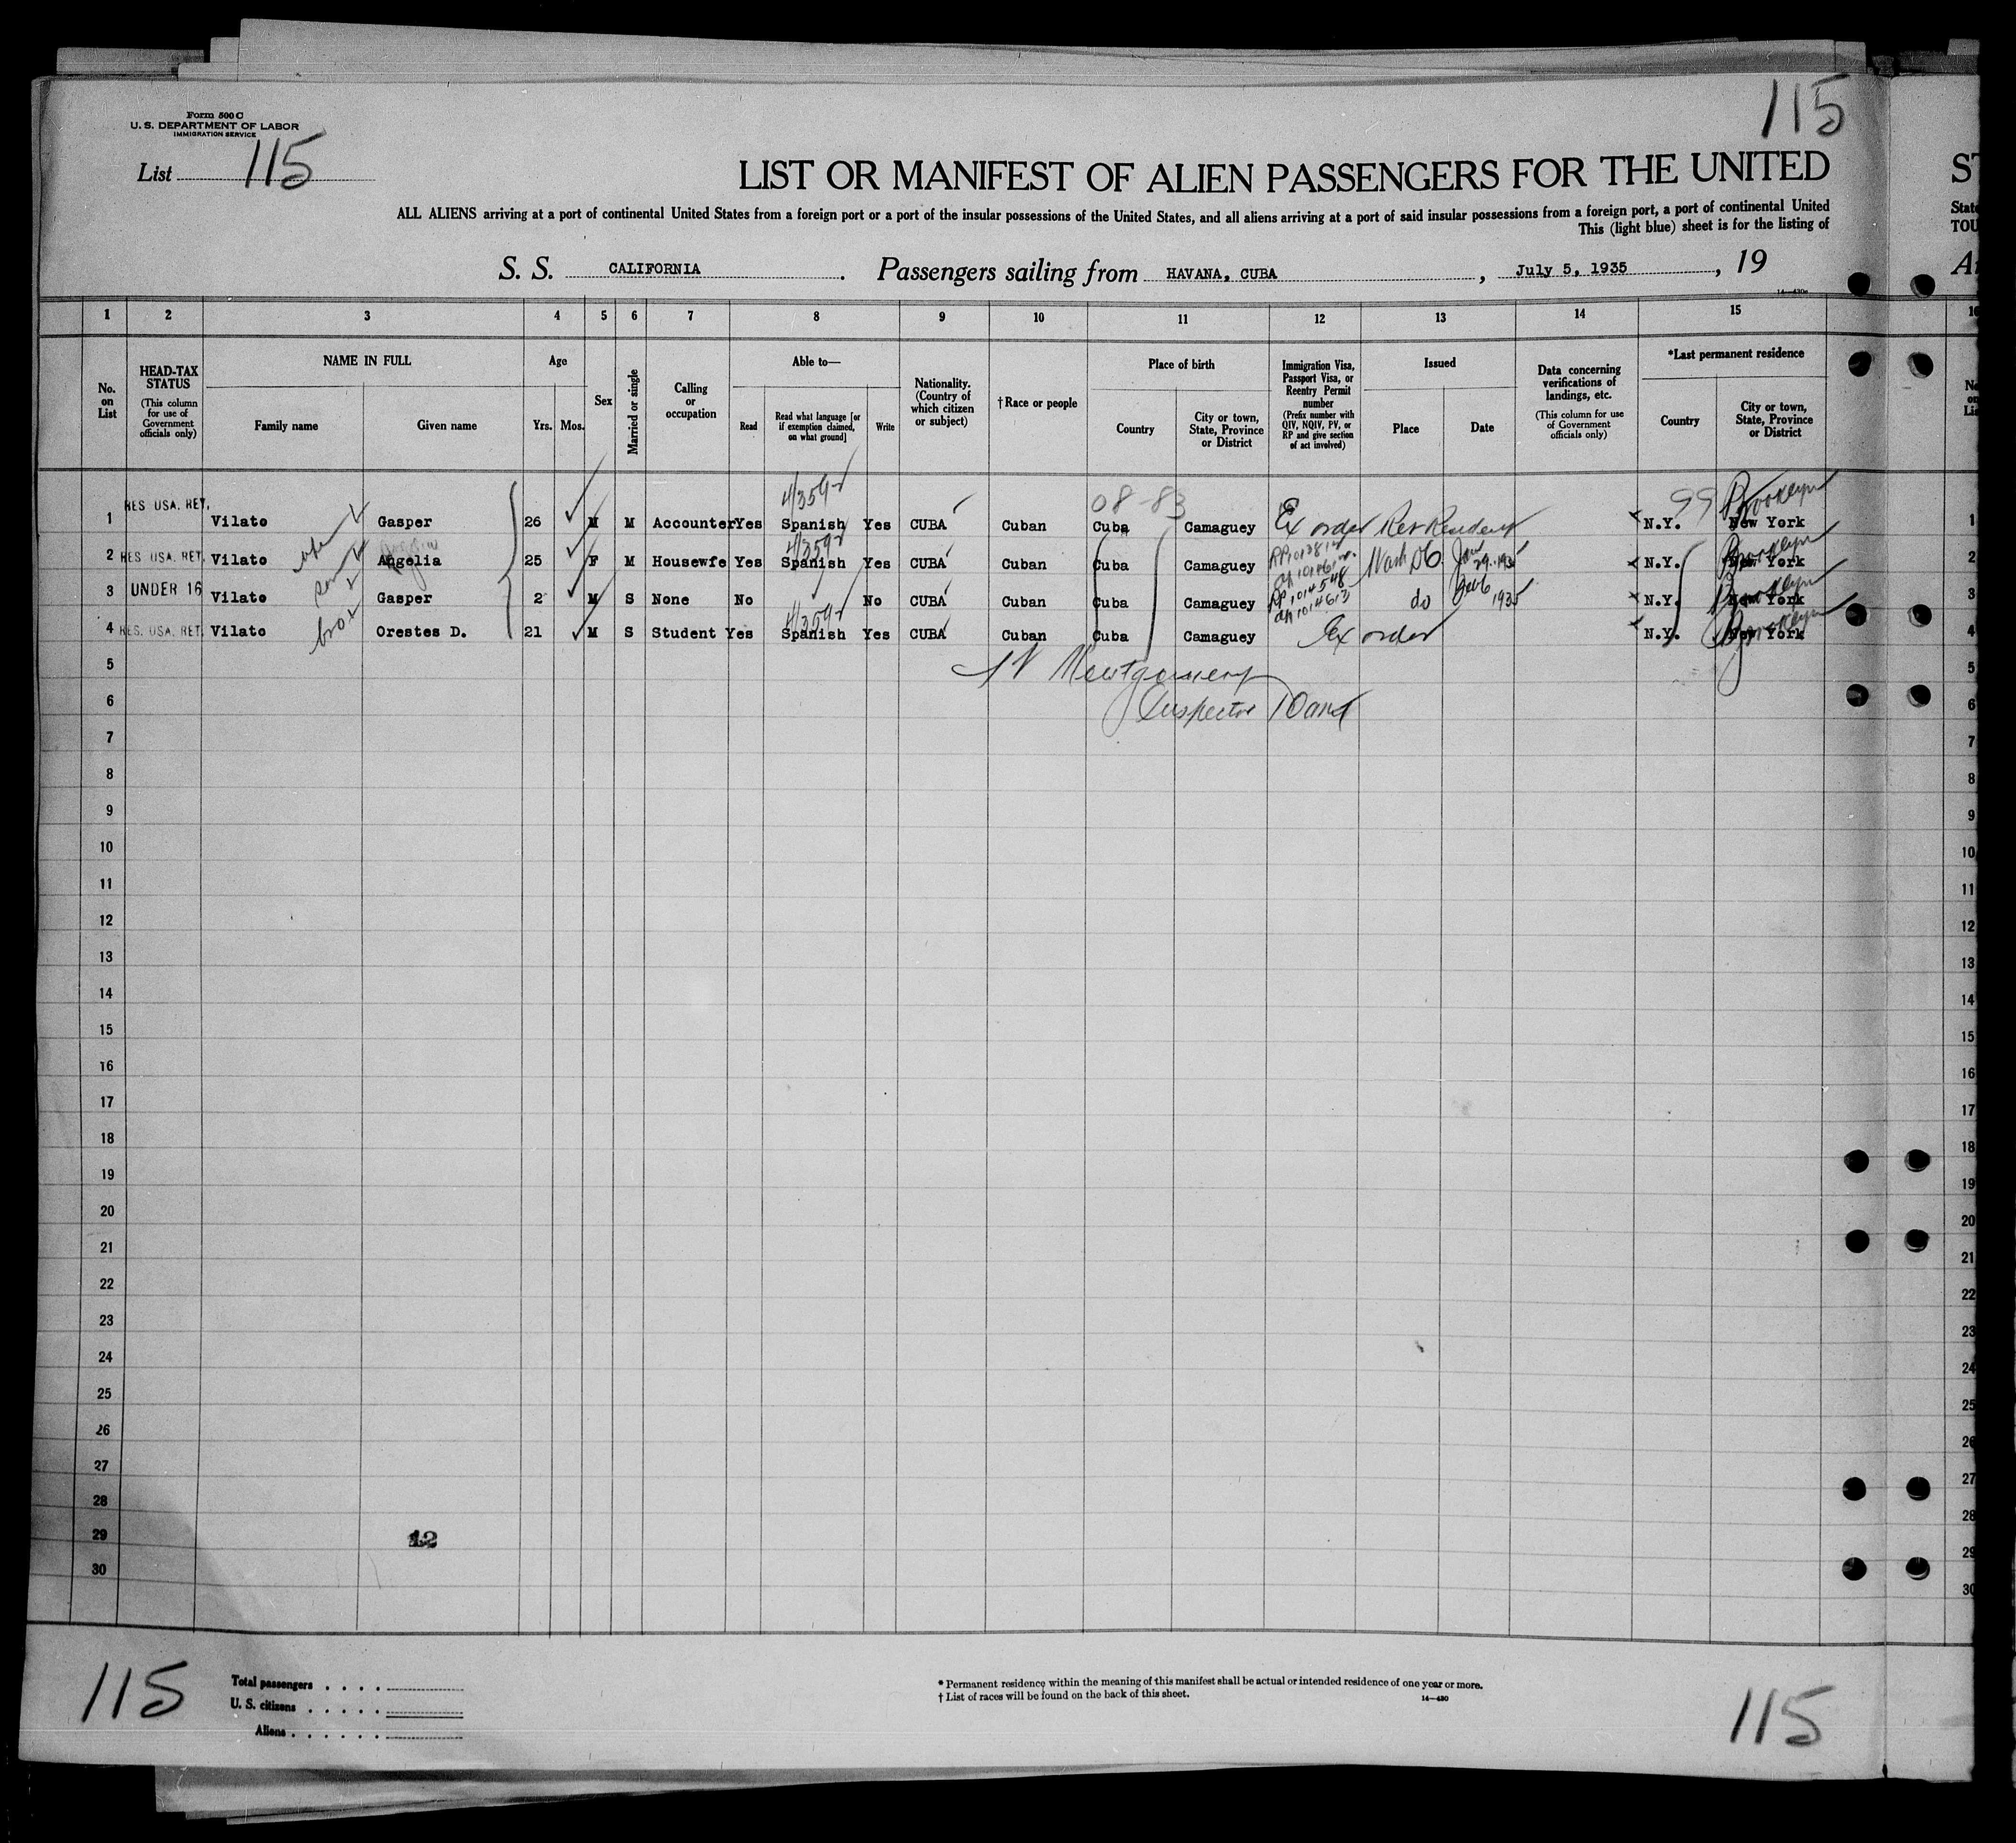 115
Form 500 C
U. S. DEPARTMENT OF LABOR
IMMIGRATION SERVICE
List 115
LIST OR MANIFEST OF ALIEN PASSENGERS FOR THE UNITED
ST
ALL ALIENS arriving at a port of continental United States from a foreign port or a port of the insular possessions of the United States, and all aliens arriving at a port of said insular possessions from a foreign port, a port of continental United
State
This (light blue) sheet is for the listing of
TOU
S. S. CALIFORNIA . Passengers sailing from HAVANA, CUBA , July 5, 1935 , 19
14—430
1 2 3 4 5 6 7 8 9 10 11 12 13 14 15
No. on List
HEAD-TAX STATUS (This column for use of Government officials only)
NAME IN FULL
Family name
Given name
Age
Yrs. Mos.
Sex
Married or single
Calling or occupation
Able to—
Read
Read what language [or if exemption claimed, on what ground]
Write
Nationality. (Country of which citizen or subject)
†Race or people
Place of birth
Country
City or town, State, Province or District
Immigration Visa, Passport Visa, or Reentry Permit number (Prefix number with QIV, NQIV, PV, or RP and give section of act involved)
Issued
Place
Date
Data concerning verifications of landings, etc. (This column for use of Government officials only)
*Last permanent residence
Country
City or town, State, Province or District
4/359 08-83 99 Brooklyn
1 RES USA. RET. Vilato Gasper 26 M M Accounter Yes Spanish Yes CUBA Cuban Cuba Camaguey Ex order N.Y. New York 1
4/359 Brooklyn
2 RES USA. RET. Vilato Angelia 25 F M Housewfe Yes Spanish Yes CUBA Cuban Cuba Camaguey Wash DC Jan 29-1935 N.Y. New York 2
Brooklyn
3 UNDER 16 Vilato Gasper 2 M S None No No CUBA Cuban Cuba Camaguey RP 1014548 do 1935 N.Y. New York 3
4/359 Brooklyn
4 RES. USA. RET. Vilato Orestes D. 21 M S Student Yes Spanish Yes CUBA Cuban Cuba Camaguey Ex order N.Y. New York 4
5 5
Inspector
6 6
7 7
8 8
9 9
10 10
11 11
12 12
13 13
14 14
15 15
16 16
17 17
18 18
19 19
20 20
21 21
22 22
23 23
24 24
25 25
26 26
27 27
28 28
29 12 29
30 30
115
Total passengers . . . .
U. S. citizens . . . . .
Aliens . . . . . .
* Permanent residence within the meaning of this manifest shall be actual or intended residence of one year or more.
† List of races will be found on the back of this sheet.
14—430
115